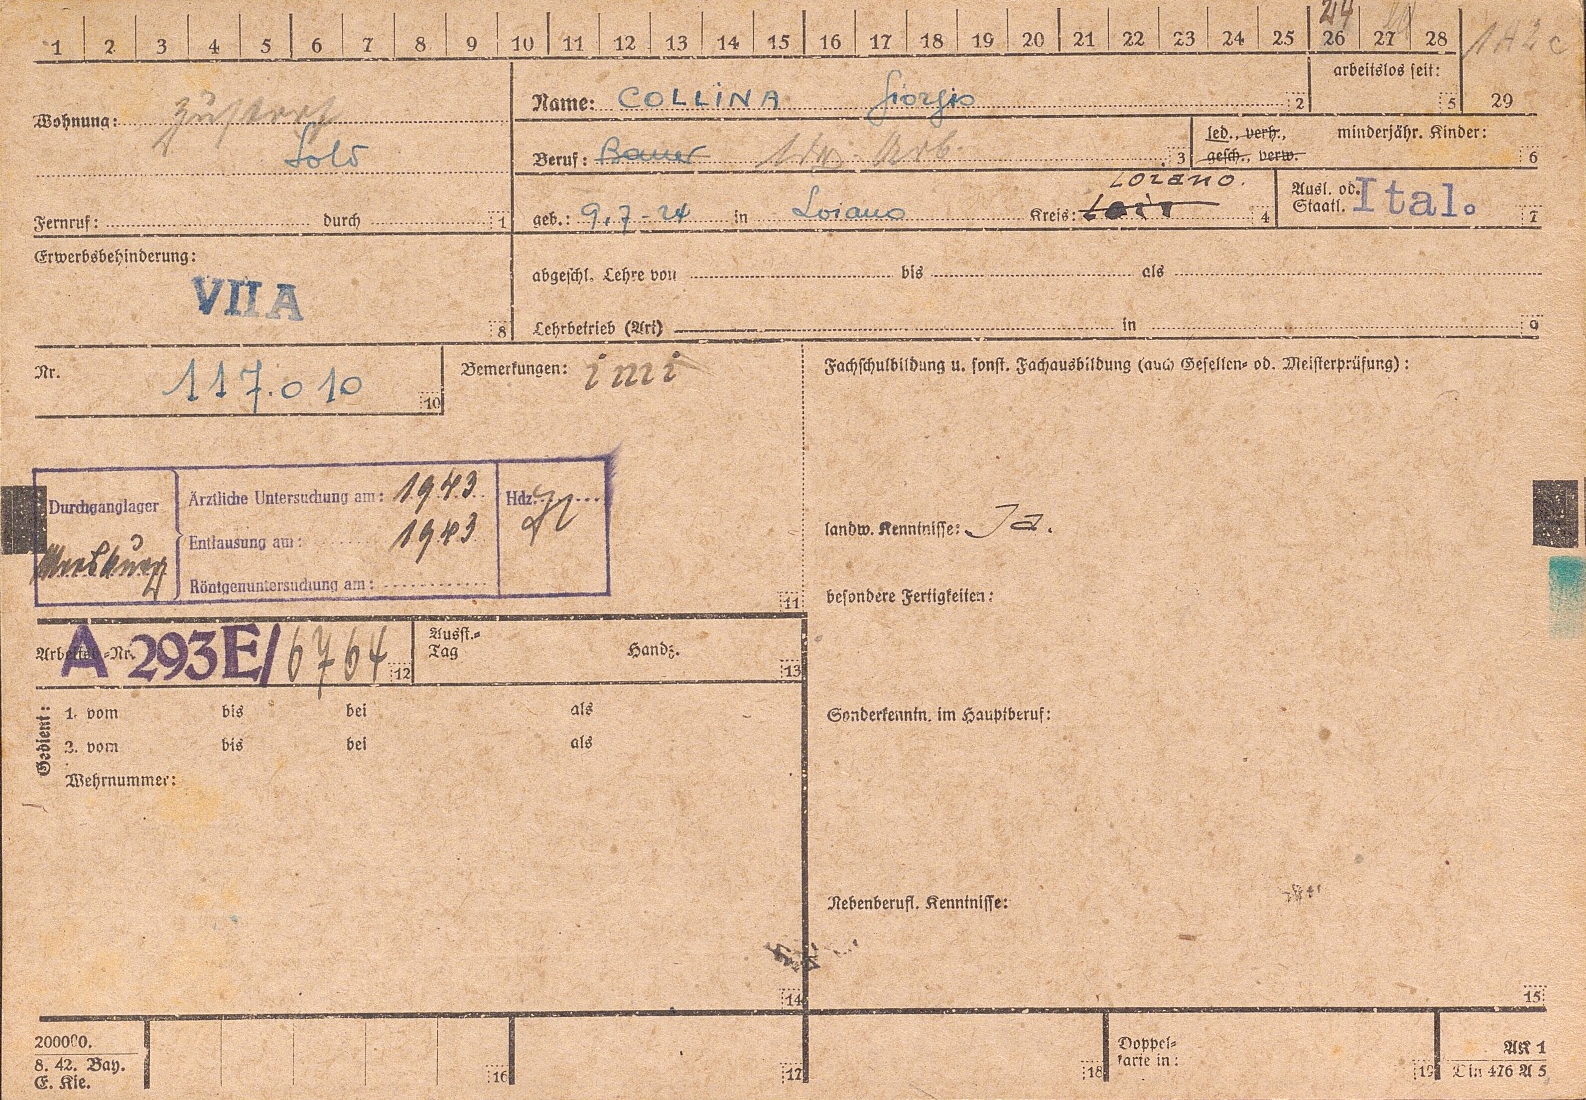 1 2 3 4 5 6 7 8 9 10 11 12 13 14 15 16 17 18 19 20 21 22 23 24 25 26 27 28
24
arbeitslos seit:
5 29
Wohnung:
Solo
Name: COLLINA Giorgio 2
Beruf: Bauer Arb. 3
led., verh., gesch., verw.
minderjähr. Kinder: 6
Fernruf: durch 1
geb.: 9.7-24 in Loiano Kreis: Loiano. 4
Ausl. od. Staatl. Ital. 7
Erwerbsbehinderung:
VII A
8
abgeschl. Lehre von bis als
Lehrbetrieb (Art) in 9
Nr. 117.010 10
Bemerkungen: imi
Fachschulbildung u. sonst. Fachausbildung (auch Gesellen- od. Meisterprüfung):
Durchganglager
Ärztliche Untersuchung am: 1943
Hdz.
Entlausung am: 1943
Röntgenuntersuchung am:
11
landw. Kenntnisse: Ja.
besondere Fertigkeiten:
Arbeitsb-Nr. A 293E/6764 12
Ausst.-Tag Handz. 13
Gedient:
1. vom bis bei als
2. vom bis bei als
Wehrnummer:
Sonderkenntn. im Hauptberuf:
Nebenberufl. Kenntnisse:
14
15
200000.
8. 42. Bay.
E. Kie.
16
17
18
Doppel-
karte in:
19
AK 1
Din 476 A 5